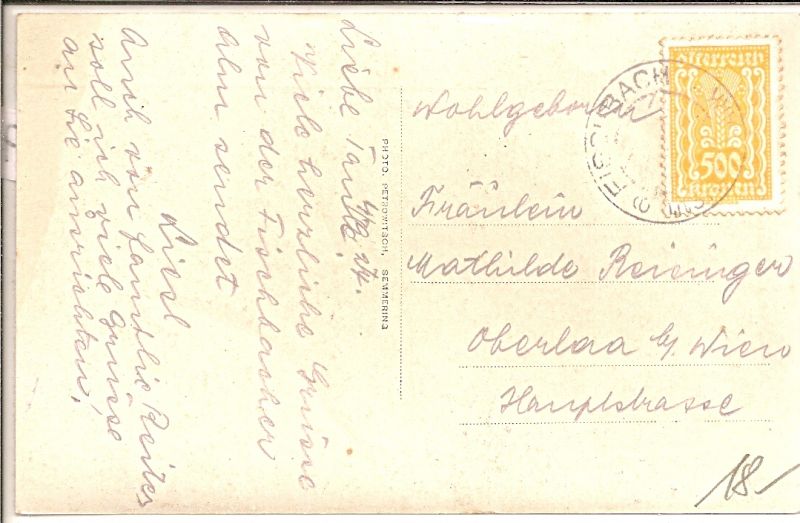 Liebe Tante!
4/8. 24.
Viele herzliche Grüsse
von der Fischbacher
Alm sendet
Liesl
Auch von Familie Reiter
soll ich viele Grüsse
an Sie ausrichten.
PHOTO. PETROWITSCH, SEMMERING
Wohlgeboren
Fräulein
Mathilde Reisinger
Oberlaa b/ Wien
Hauptstrasse
Österreich
500
Kronen
FISCHBACH
18-